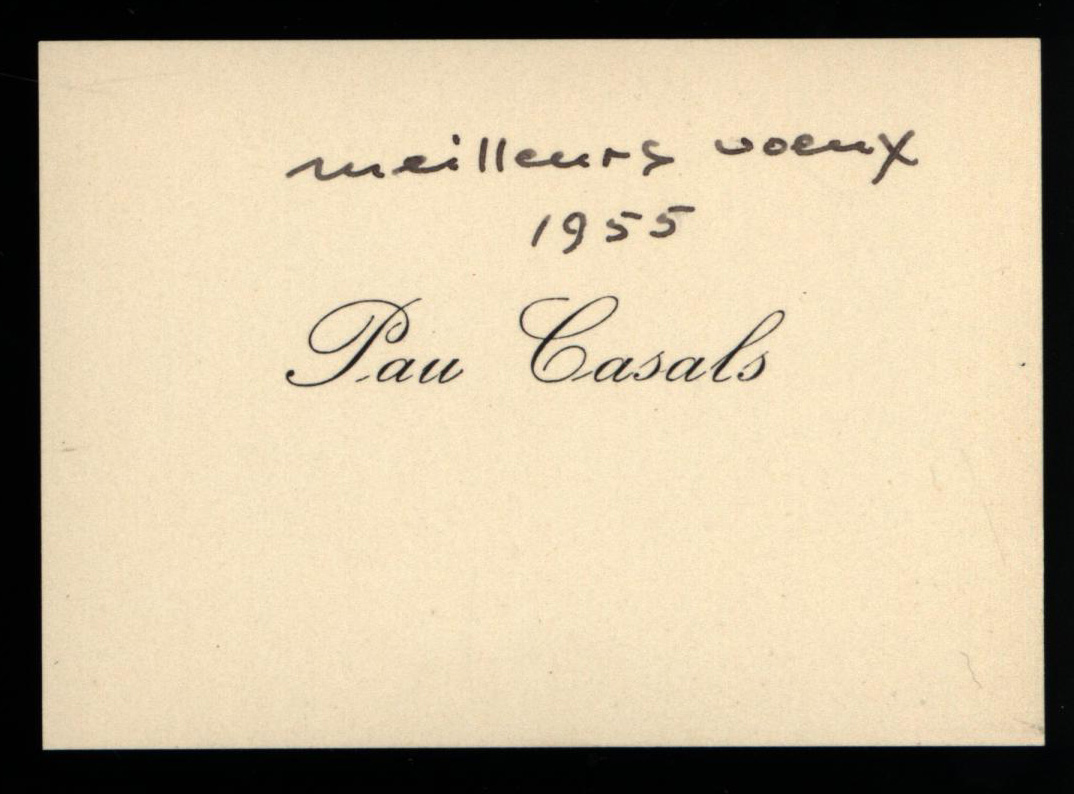 meilleurs voeux
1955
Pau Casals